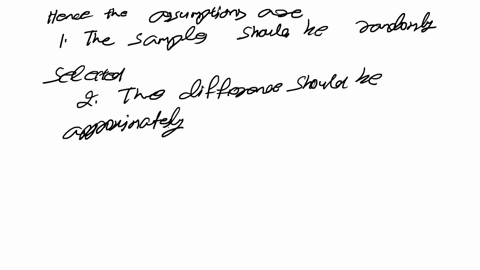 Hence the assumptions are
1. The sample should be randomly
selected
2. The difference should be
approximately